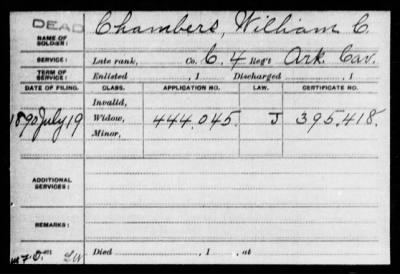 DEAD
NAME OF SOLDIER: Chambers, William C.
SERVICE: Late rank, Co. C. 4 Reg't Ark. Cav.
TERM OF SERVICE: Enlisted , 1 Discharged , 1
DATE OF FILING. CLASS. APPLICATION NO. LAW. CERTIFICATE NO.
Invalid,
1890 July 19 Widow, 444.045. J 395.418.
Minor,
ADDITIONAL SERVICES:
REMARKS:
Died , 1 , at